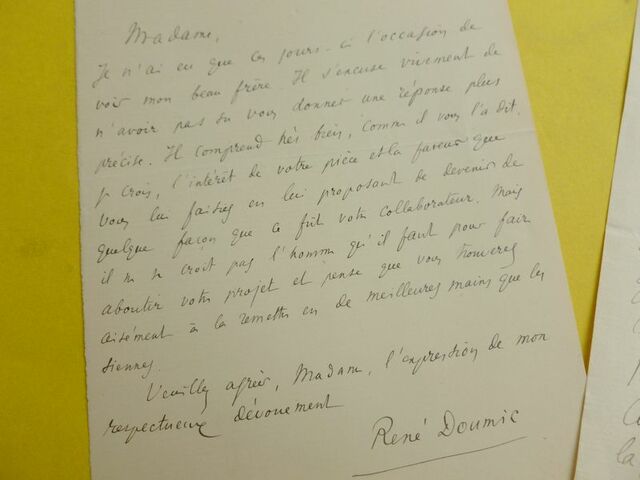 Madame,
Je n'ai eu que ces jours-ci l'occasion de
voir mon beau frère. Il s'excuse vivement de
n'avoir pas su vous donner une réponse plus
précise. Il comprend très bien, comme il vous l'a dit,
je crois, l'intérêt de votre pièce et la faveur que
vous lui faisiez en lui proposant de devenir de
quelque façon que ce fût votre collaborateur. Mais
il ne se croit pas l'homme qu'il faut pour faire
aboutir votre projet et pense que vous trouverez
aisément à la remettre en de meilleures mains que les
siennes.
Veuillez agréer, Madame, l'expression de mon
respectueux dévouement
René Doumic
la